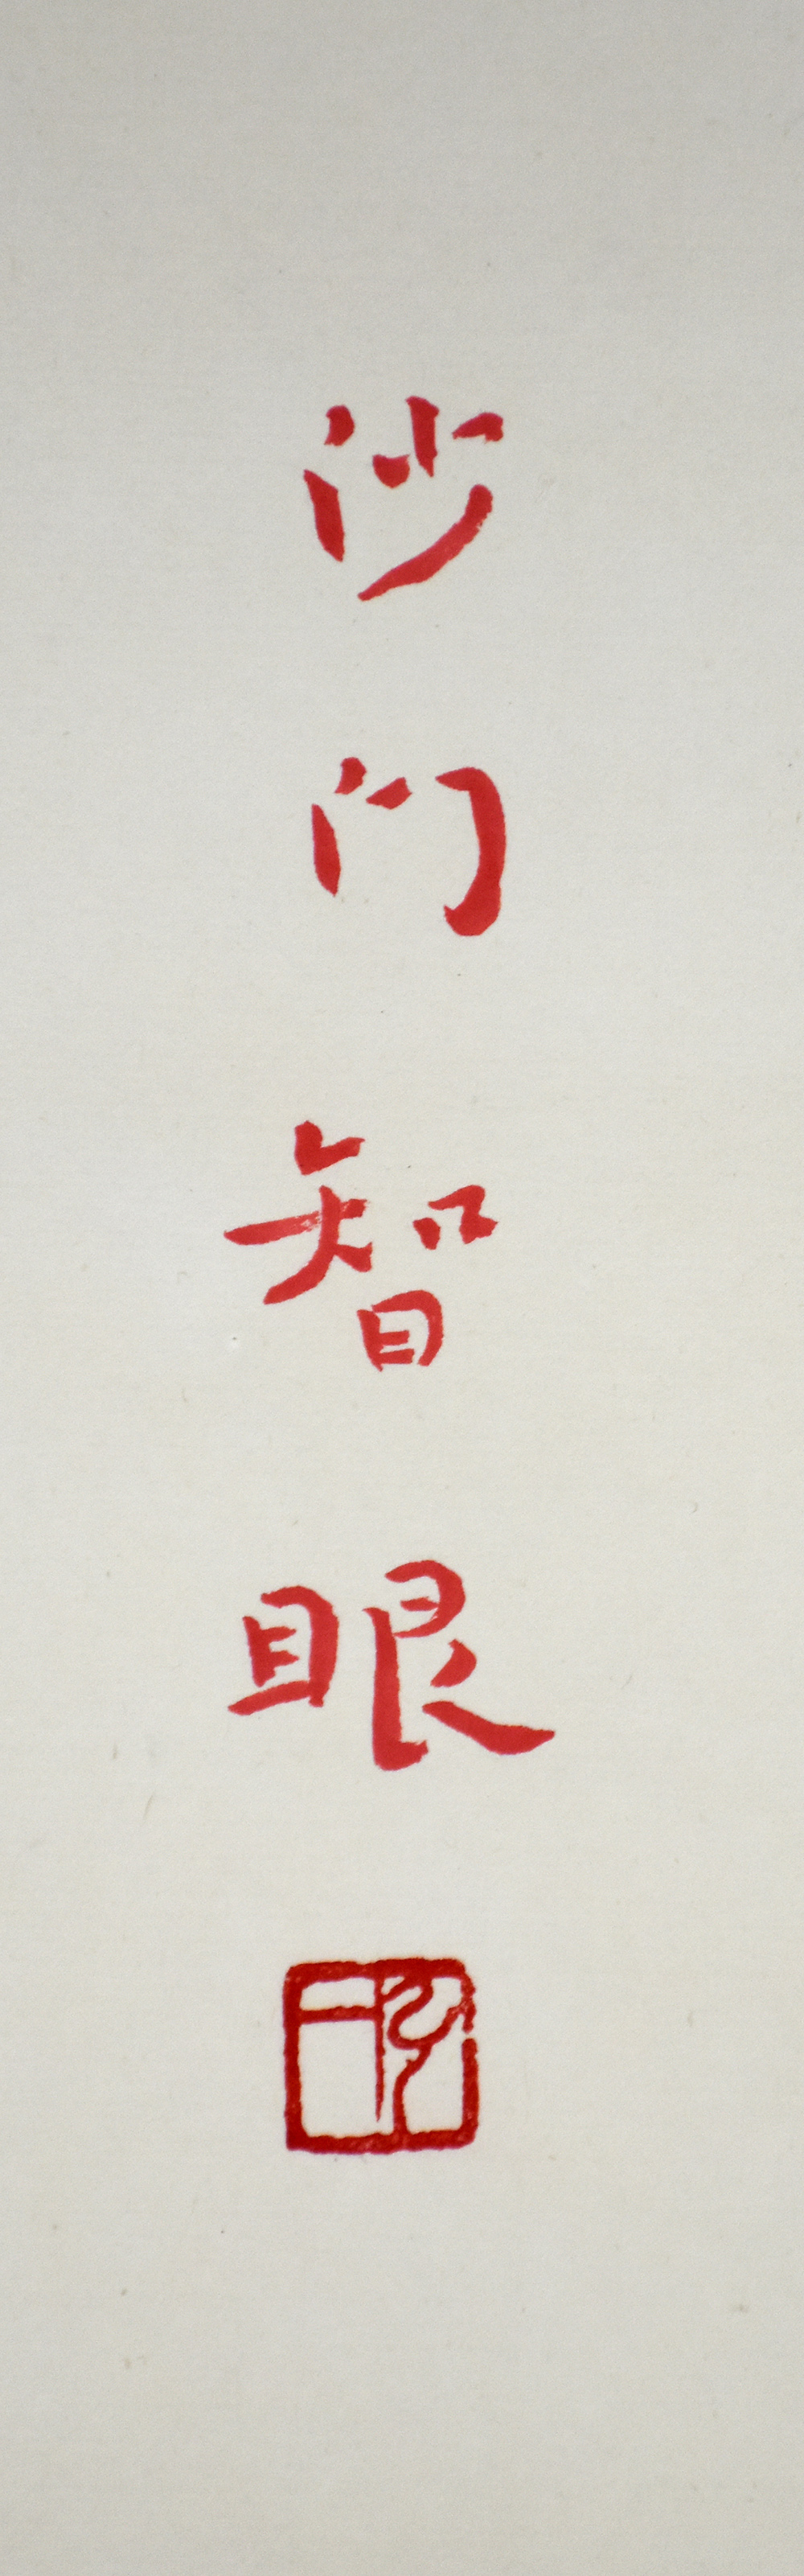 沙门智眼